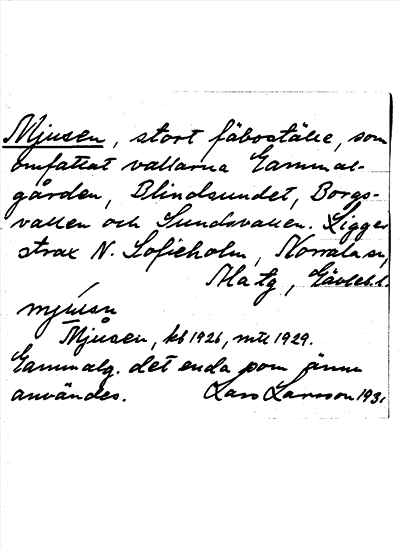 Mjusen, stort fäboställe, som
omfattat vallarna Gammal-
gården, Blindsundet, Borgs-
vallen och Sundsvallen. Ligger
strax N. Sofieholm, Norrala sn,
Ma tg, Gävleb. l.
mjusn
Mjusen, kb 1926, mtl 1929.
Gammalg. det enda som ännu
användes. Lars Larsson 1931